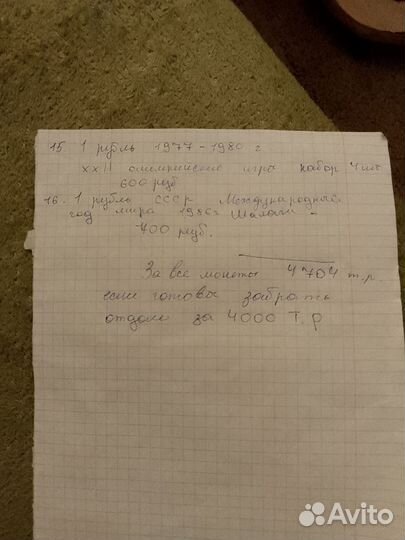 15. 1 рубль 1977-1980 г
XXII олимпийские игры набор 4 шт
600 руб
16. 1 рубль СССР Международный
год мира 1986г Шалаш -
700 руб.
За все монеты 4704 т.р.
если готовы забрать
отдам за 4000 т.р
Avito